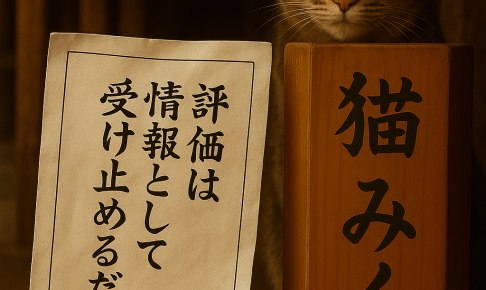 評価は
情報として
受け止めるだ
猫み